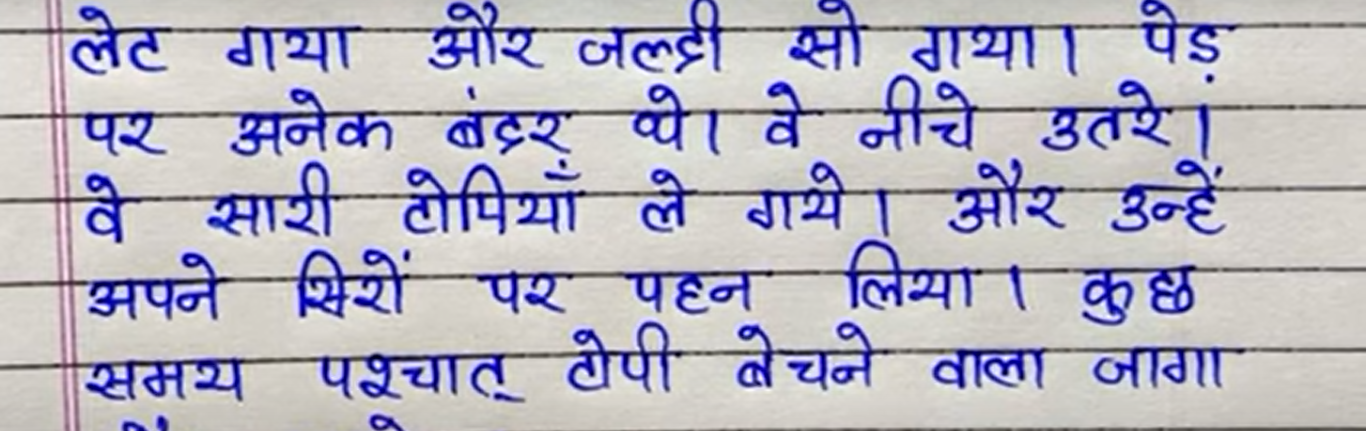 लेट गया और जल्दी सो गया। पेड़
पर अनेक बंदर थे। वे नीचे उतरे।
वे सारी टोपियाँ ले गये। और उन्हें
अपने सिरों पर पहन लिया। कुछ
समय पश्चात् टोपी बेचने वाला जागा